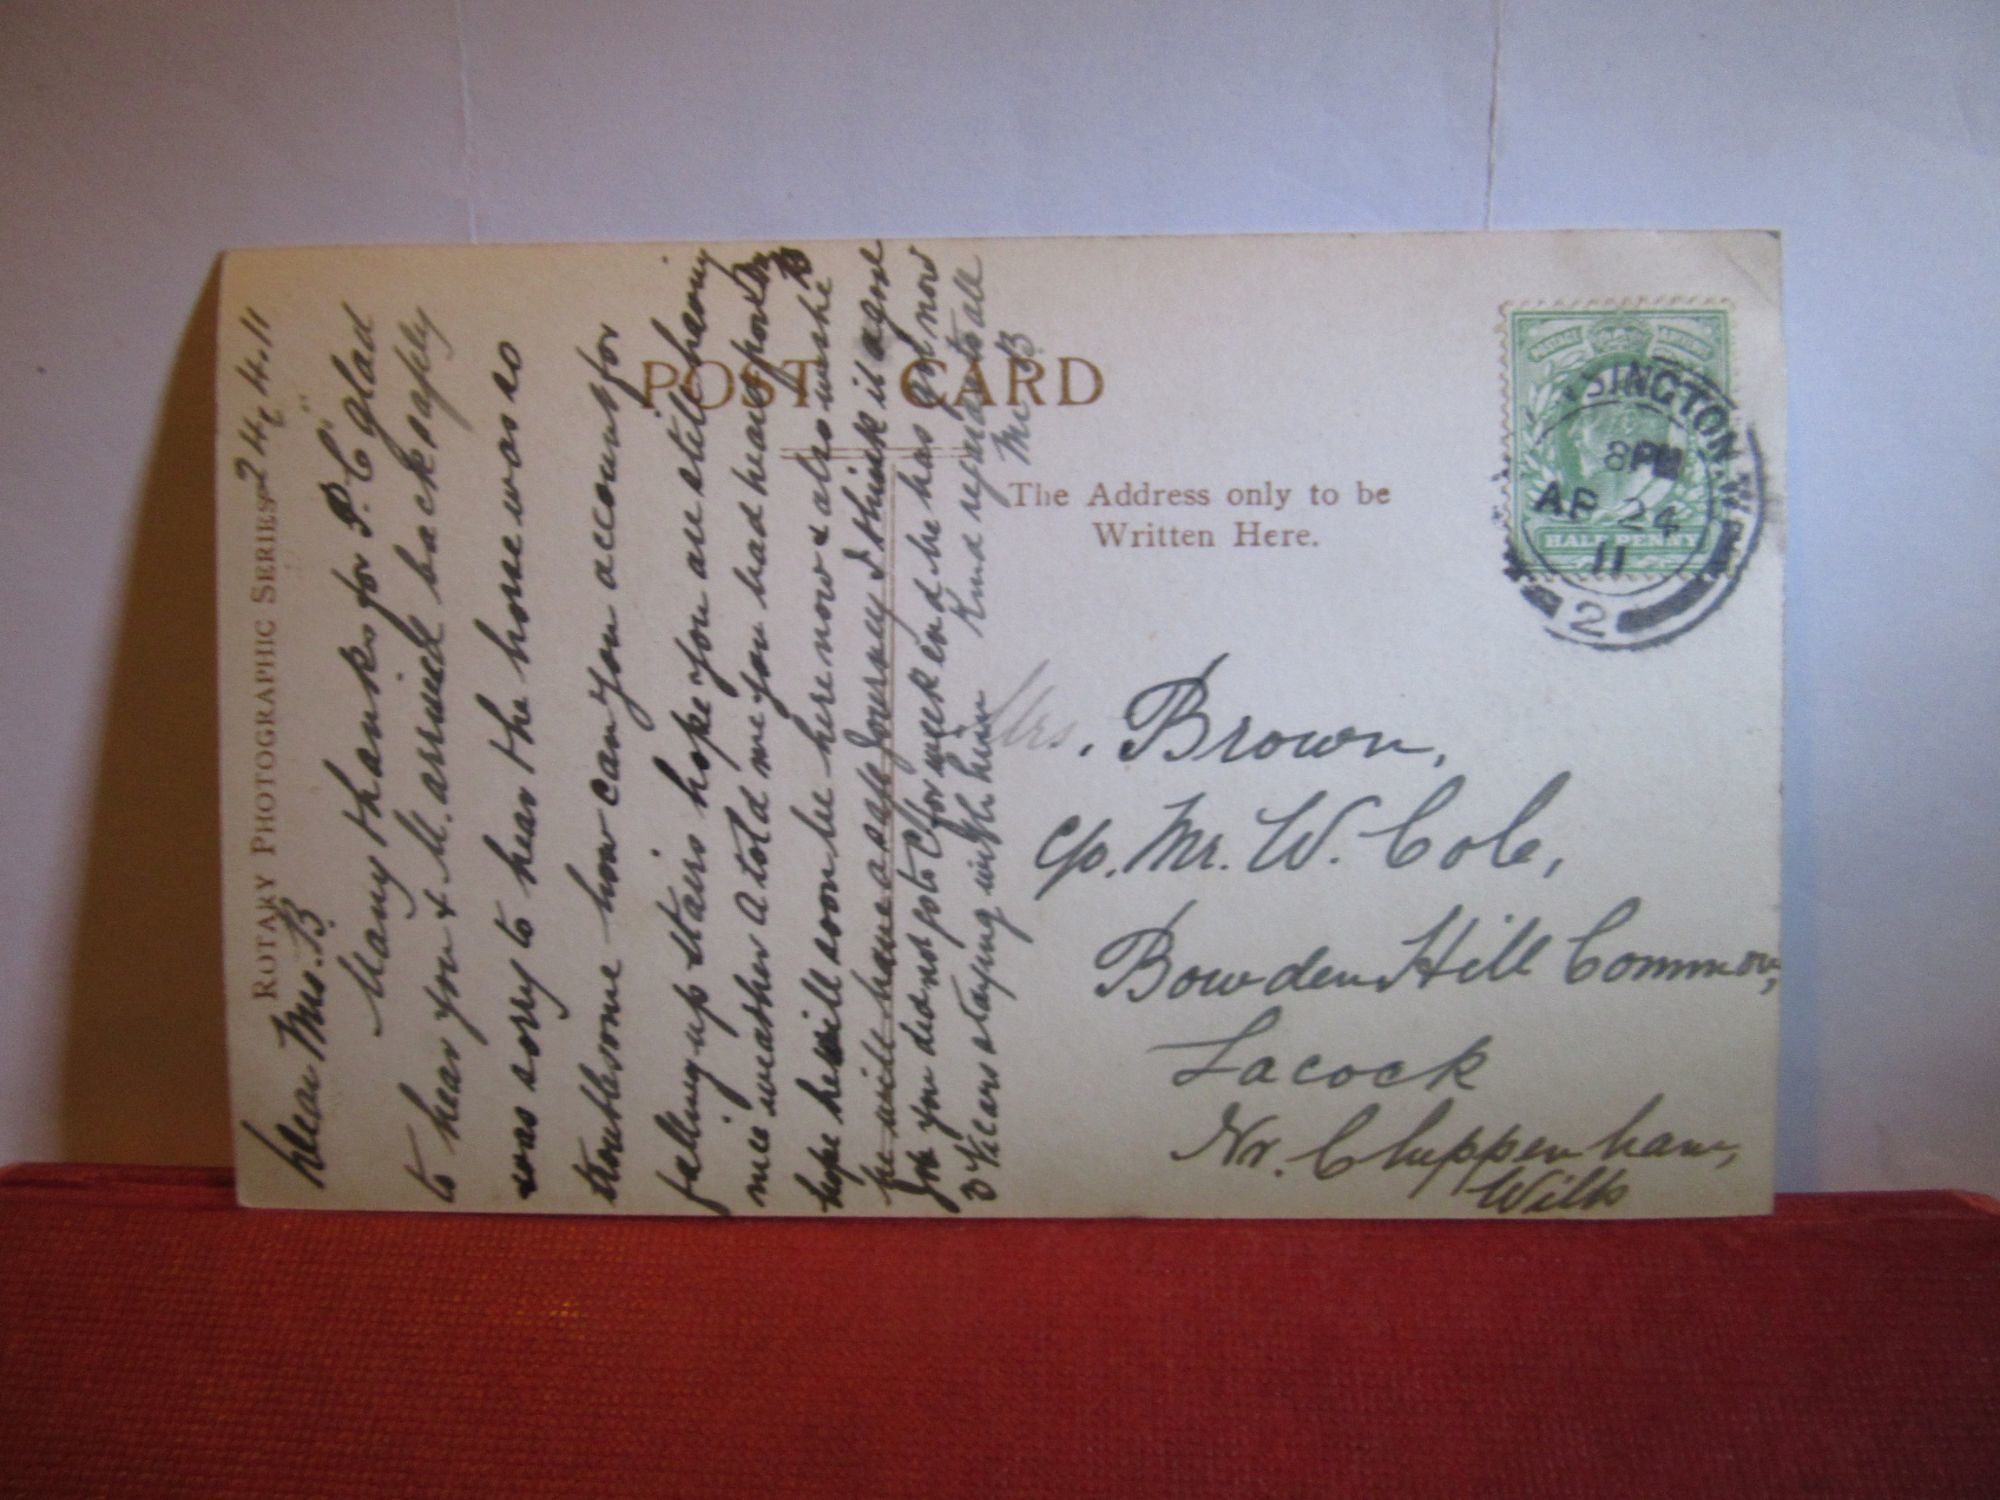 ROTARY PHOTOGRAPHIC SERIES
24.4.11
Dear Mrs. B
Many thanks for P.C glad
to hear you & M. arrived back safely
was sorry to hear the horse was so
troublesome how can you account for
falling up stairs hope you are still having
nice weather A told me you had heard from
hope he will soon be here now & also wish he
he will have a safe journey I think it a good
you did not go to C for week end he has got now
staying with him Kind regards to all
M. B.
POST CARD
The Address only to be
Written Here.
POSTAGE
HALF PENNY
SINGTON
8 PM
AP 24
11
2
Mrs. Brown,
c/o. Mr. W. Cole,
Bowden Hill Common,
Lacock
Nr. Chippenham,
Wilts